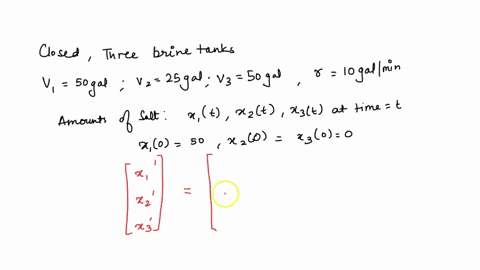 Closed, Three brine tanks
V1 = 50 gal ; V2 = 25 gal ; V3 = 50 gal , r = 10 gal/min
Amounts of Salt : x1(t) , x2(t) , x3(t) at time = t
x1(0) = 50 , x2(0) = x3(0) = 0
[x1' x2' x3'] = [